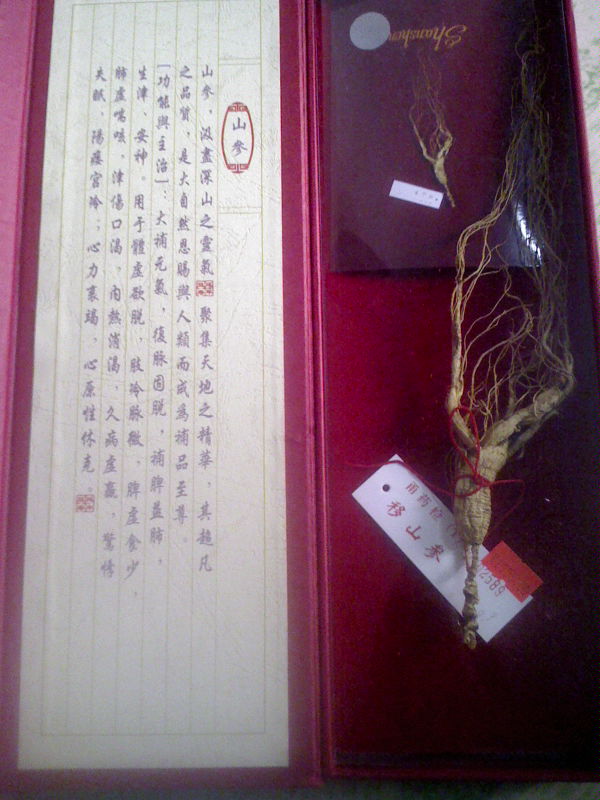 山參
山參，汲盡深山之靈氣 聚集天地之精華，其超凡
之品質，是大自然恩賜與人類而成爲補品至尊。
[功能與主治]：大補元氣，復脉固脱，補脾益肺，
生津、安神。用于體虚欲脱，肢冷脉微，脾虚食少，
肺虚喘咳，津傷口渴，内熱消渴，久病虚羸，驚悸
失眠，陽痿宫冷；心力衰竭，心原性休克。
Shanshen
移山參
2589